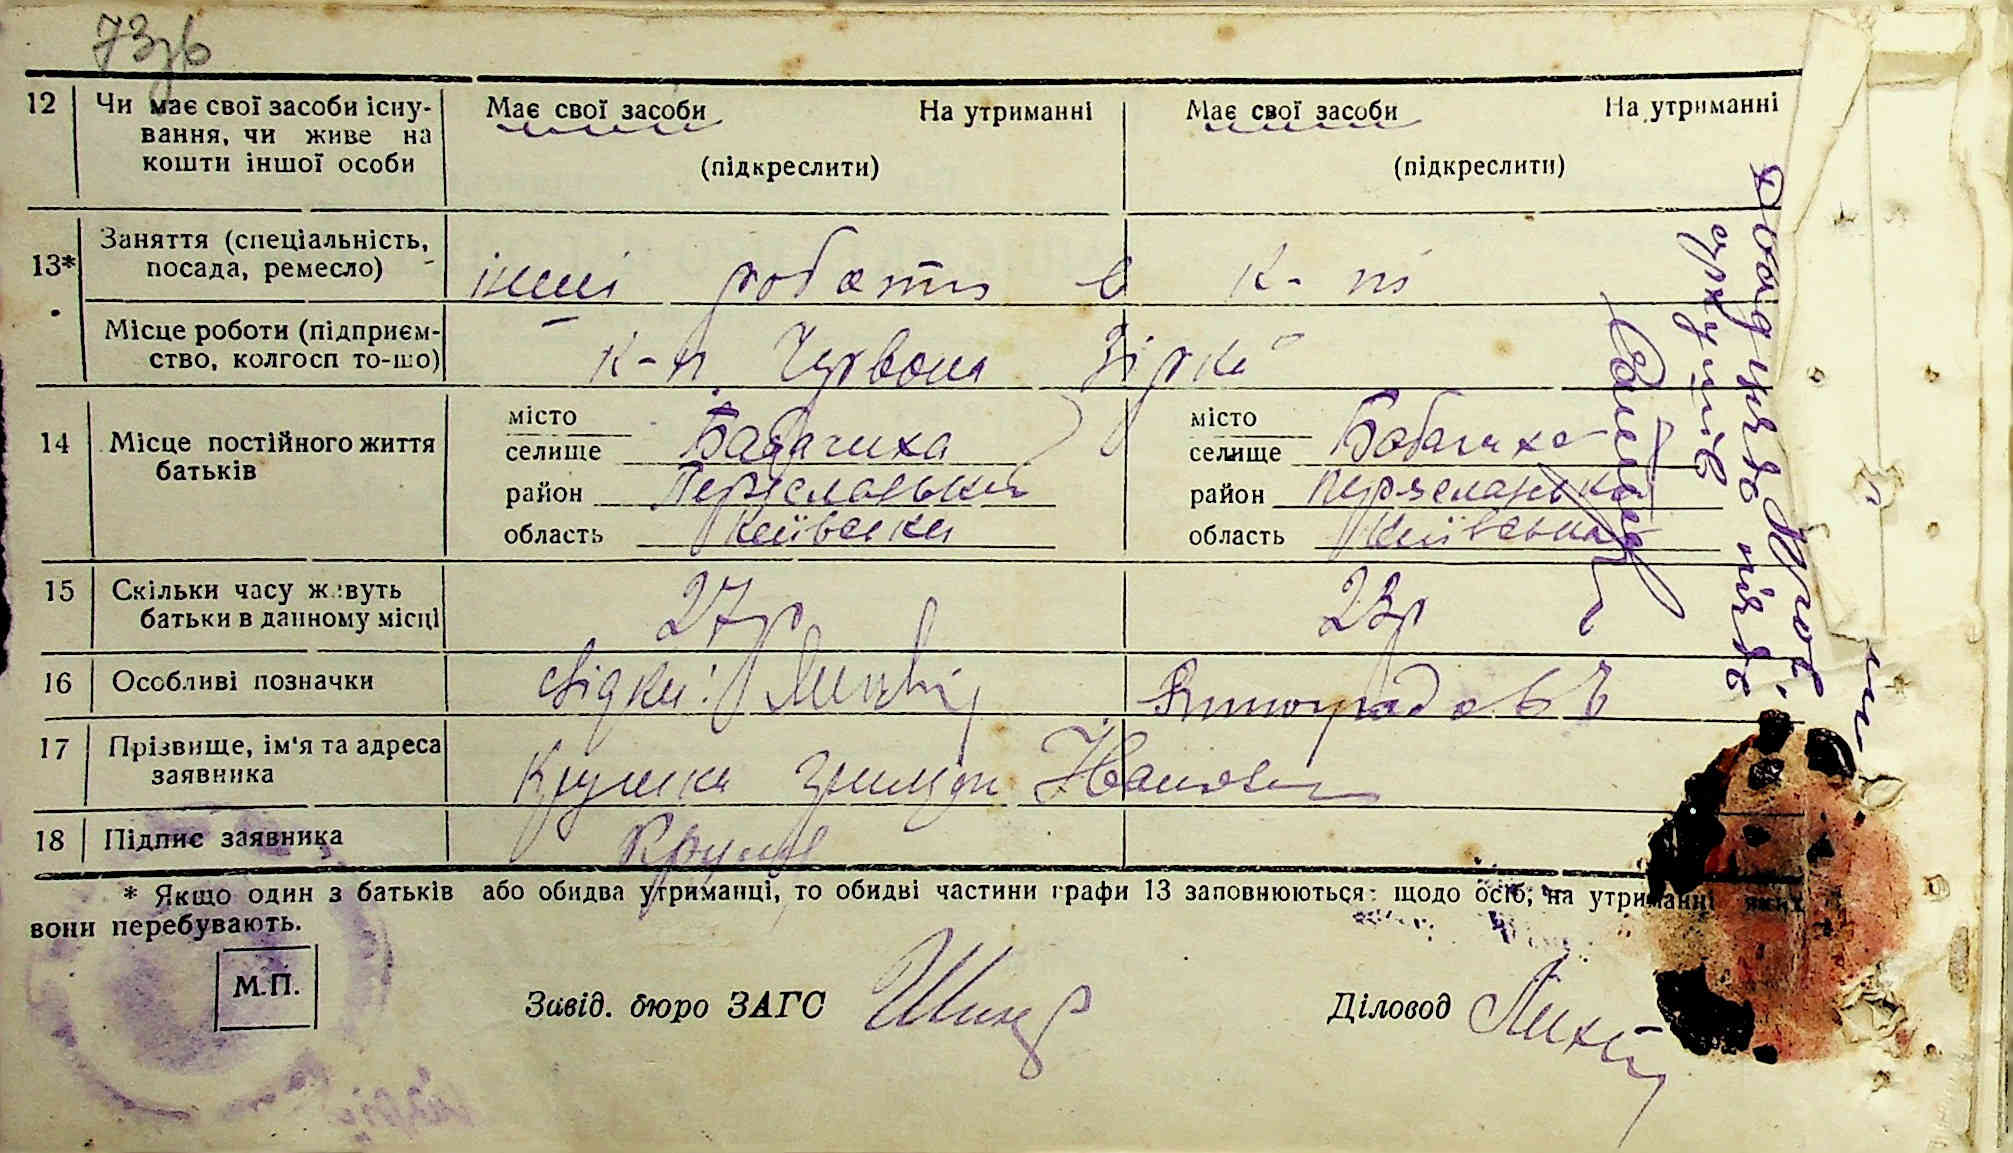 73зв
12 Чи має свої засоби існу-
вання, чи живе на
кошти іншої особи
Має свої засоби На утриманні
(підкреслити)
Має свої засоби На утриманні
(підкреслити)
13* Заняття (спеціальність,
посада, ремесло)
інші роботи в к-пі
Місце роботи (підприєм-
ство, колгосп то-що)
к-п Червона Зірка
14 Місце постійного життя
батьків
місто
селище Бабачиха
район Переяславський
область Київська
місто
селище Бабачиха
район Переяславський
область Київська
15 Скільки часу живуть
батьки в данному місці
27р
23р
16 Особливі позначки
свідки: Виноградовъ
17 Прізвище, ім'я та адреса
заявника
Іванович
18 Підпис заявника
* Якщо один з батьків або обидва утриманці, то обидві частини графи 13 заповнюються щодо осіб, на утриманні яких
вони перебувають.
М.П.
Завід. бюро ЗАГС
Діловод
Двадцять пять
аркушів